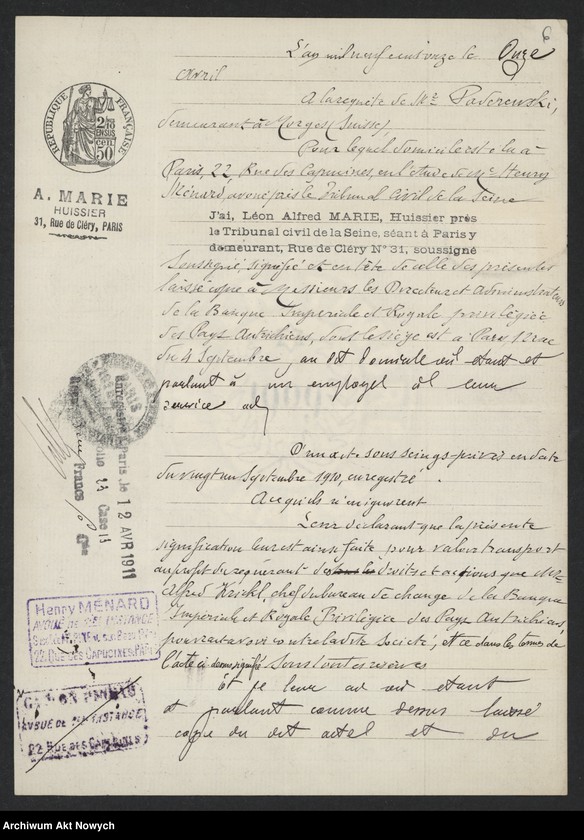 6
L'an mil neuf cent onze le Onze
Avril
A la requête de Mr Paderewski,
demeurant à Morges (Suisse),
Pour lequel domicile est élu à
Paris, 22 Rue des Capucines, en l'étude de Me Henry
Ménard, avoué près le Tribunal Civil de la Seine
RÉPUBLIQUE FRANÇAISE
2/10 EN SUS
50 cen
A. MARIE
HUISSIER
31, Rue de Cléry, PARIS
J'ai, Léon Alfred MARIE, Huissier près
le Tribunal civil de la Seine, séant à Paris y
demeurant, Rue de Cléry N° 31, soussigné
Soussigné, signifié et en tête de celle des présentes
laissé copie à Messieurs les Directeur et Administrateurs
de la Banque Impériale et Royale privilégiée
des Pays Autrichiens, dont le siège est à Paris 12 rue
du 4 Septembre, au dit domicile où étant et
parlant à un employé à leur
service
D'un acte sous seings-privés en date
du vingt un Septembre 1910, enregistré.
A ce qu'ils n'en ignorent
Leur déclarant que la présente
signification leur est ainsi faite pour valoir transport
au profit du requérant des droits et actions que Mr
Alfred chef du bureau de change de la Banque
Impériale et Royale Privilégiée des Pays Autrichiens,
pourrait avoir contre ladite Société, et ce dans les termes de
l'acte ci dessus signifié Sous toutes réserves
Et je leur ai où étant
et parlant comme dessus laissé
copie du dit acte et du
PARIS
Enregistré à Paris, le 12 AVR 1911
Folio Case 13
Reçu Francs
Henry MÉNARD
AVOUÉ DE 1ère INSTANCE
22 RUE DES CAPUCINES, PARIS
AVOUÉ DE 1ère INSTANCE
22 RUE DES CAPUCINES
Archiwum Akt Nowych